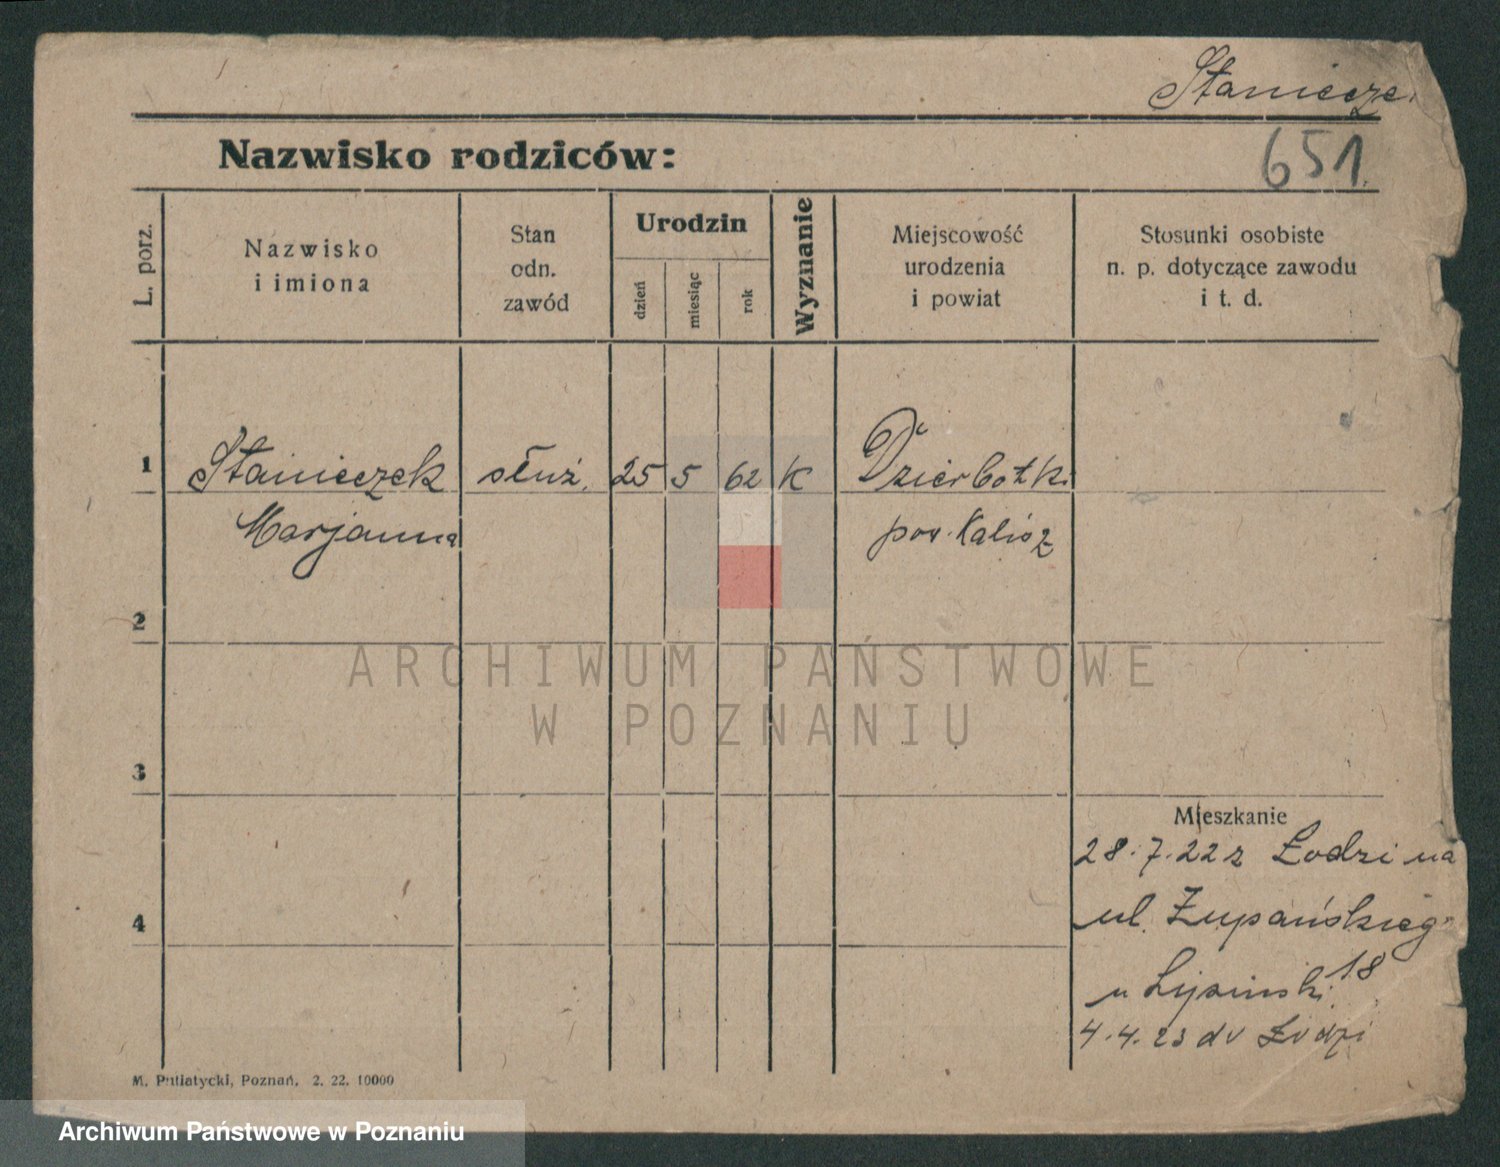 Staniecze
651
Nazwisko rodziców:
L. porz.
Nazwisko
i imiona
Stan
odn.
zawód
Urodzin
dzień
miesiąc
rok
Wyznanie
Miejscowość
urodzenia
i powiat
Stosunki osobiste
n. p. dotyczące zawodu
i t. d.
1 Stanieczek służ. 25 5 62 K Dzierbotki
Marjanna pow. Kalisz
2
ARCHIWUM PAŃSTWOWE
W POZNANIU
3
Mieszkanie
28.7.22 z Łodzi na
4
ul. Żupańskiego
18
u Lipinski
4.4.23 do Łodzi
M. Putiatycki, Poznań, 2. 22. 10000
Archiwum Państwowe w Poznaniu